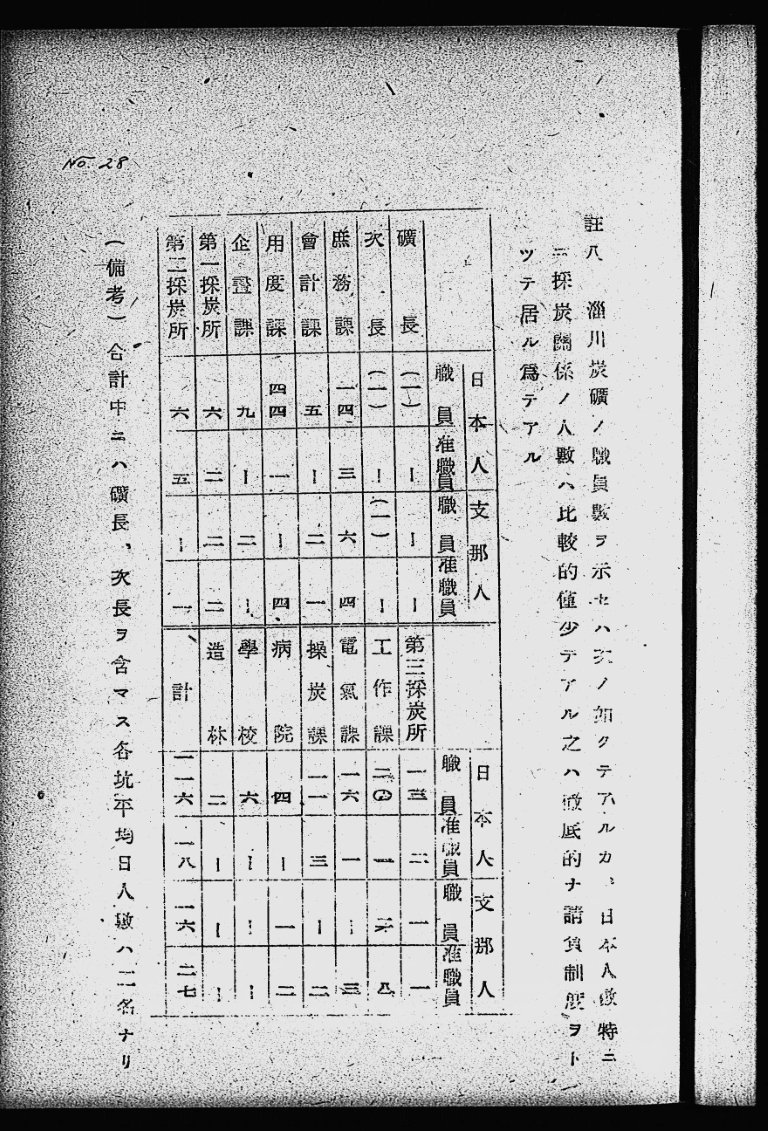 註八 淄川炭礦ノ職員數ヲ示セハ次ノ如クテアルカ、日本人數特ニ
ニ採炭關係ノ人數ハ比較的僅少テアル之ハ徹底的ナ請負制度ヲト
ツテ居ル爲テアル
日本人 支那人
職員 准職員 職員 准職員
礦長 (一) ー ー ー
次長 (一) ー (一) ー
庶務課 一四 三 六 四
會計課 五 ー 二 一
用度課 四四 一 ー 四
企畫課 九 ー 二 ー
第一採炭所 六 二 二 二
第二採炭所 六 五 ー 一
日本人 支那人
職員 准職員 職員 准職員
第三採炭所 一三 二 一 一
工作課 二〇 一 八
電氣課 一六 一 ー 三
操炭課 一一 三 ー 二
病院 四 ー 一 二
學校 六 ー ー ー
造林 二 ー ー ー
計 一一六 一八 一六 二七
(備考)合計中ニハ礦長、次長ヲ含マス各坑平均日人數ハ二名ナリ
No. 28